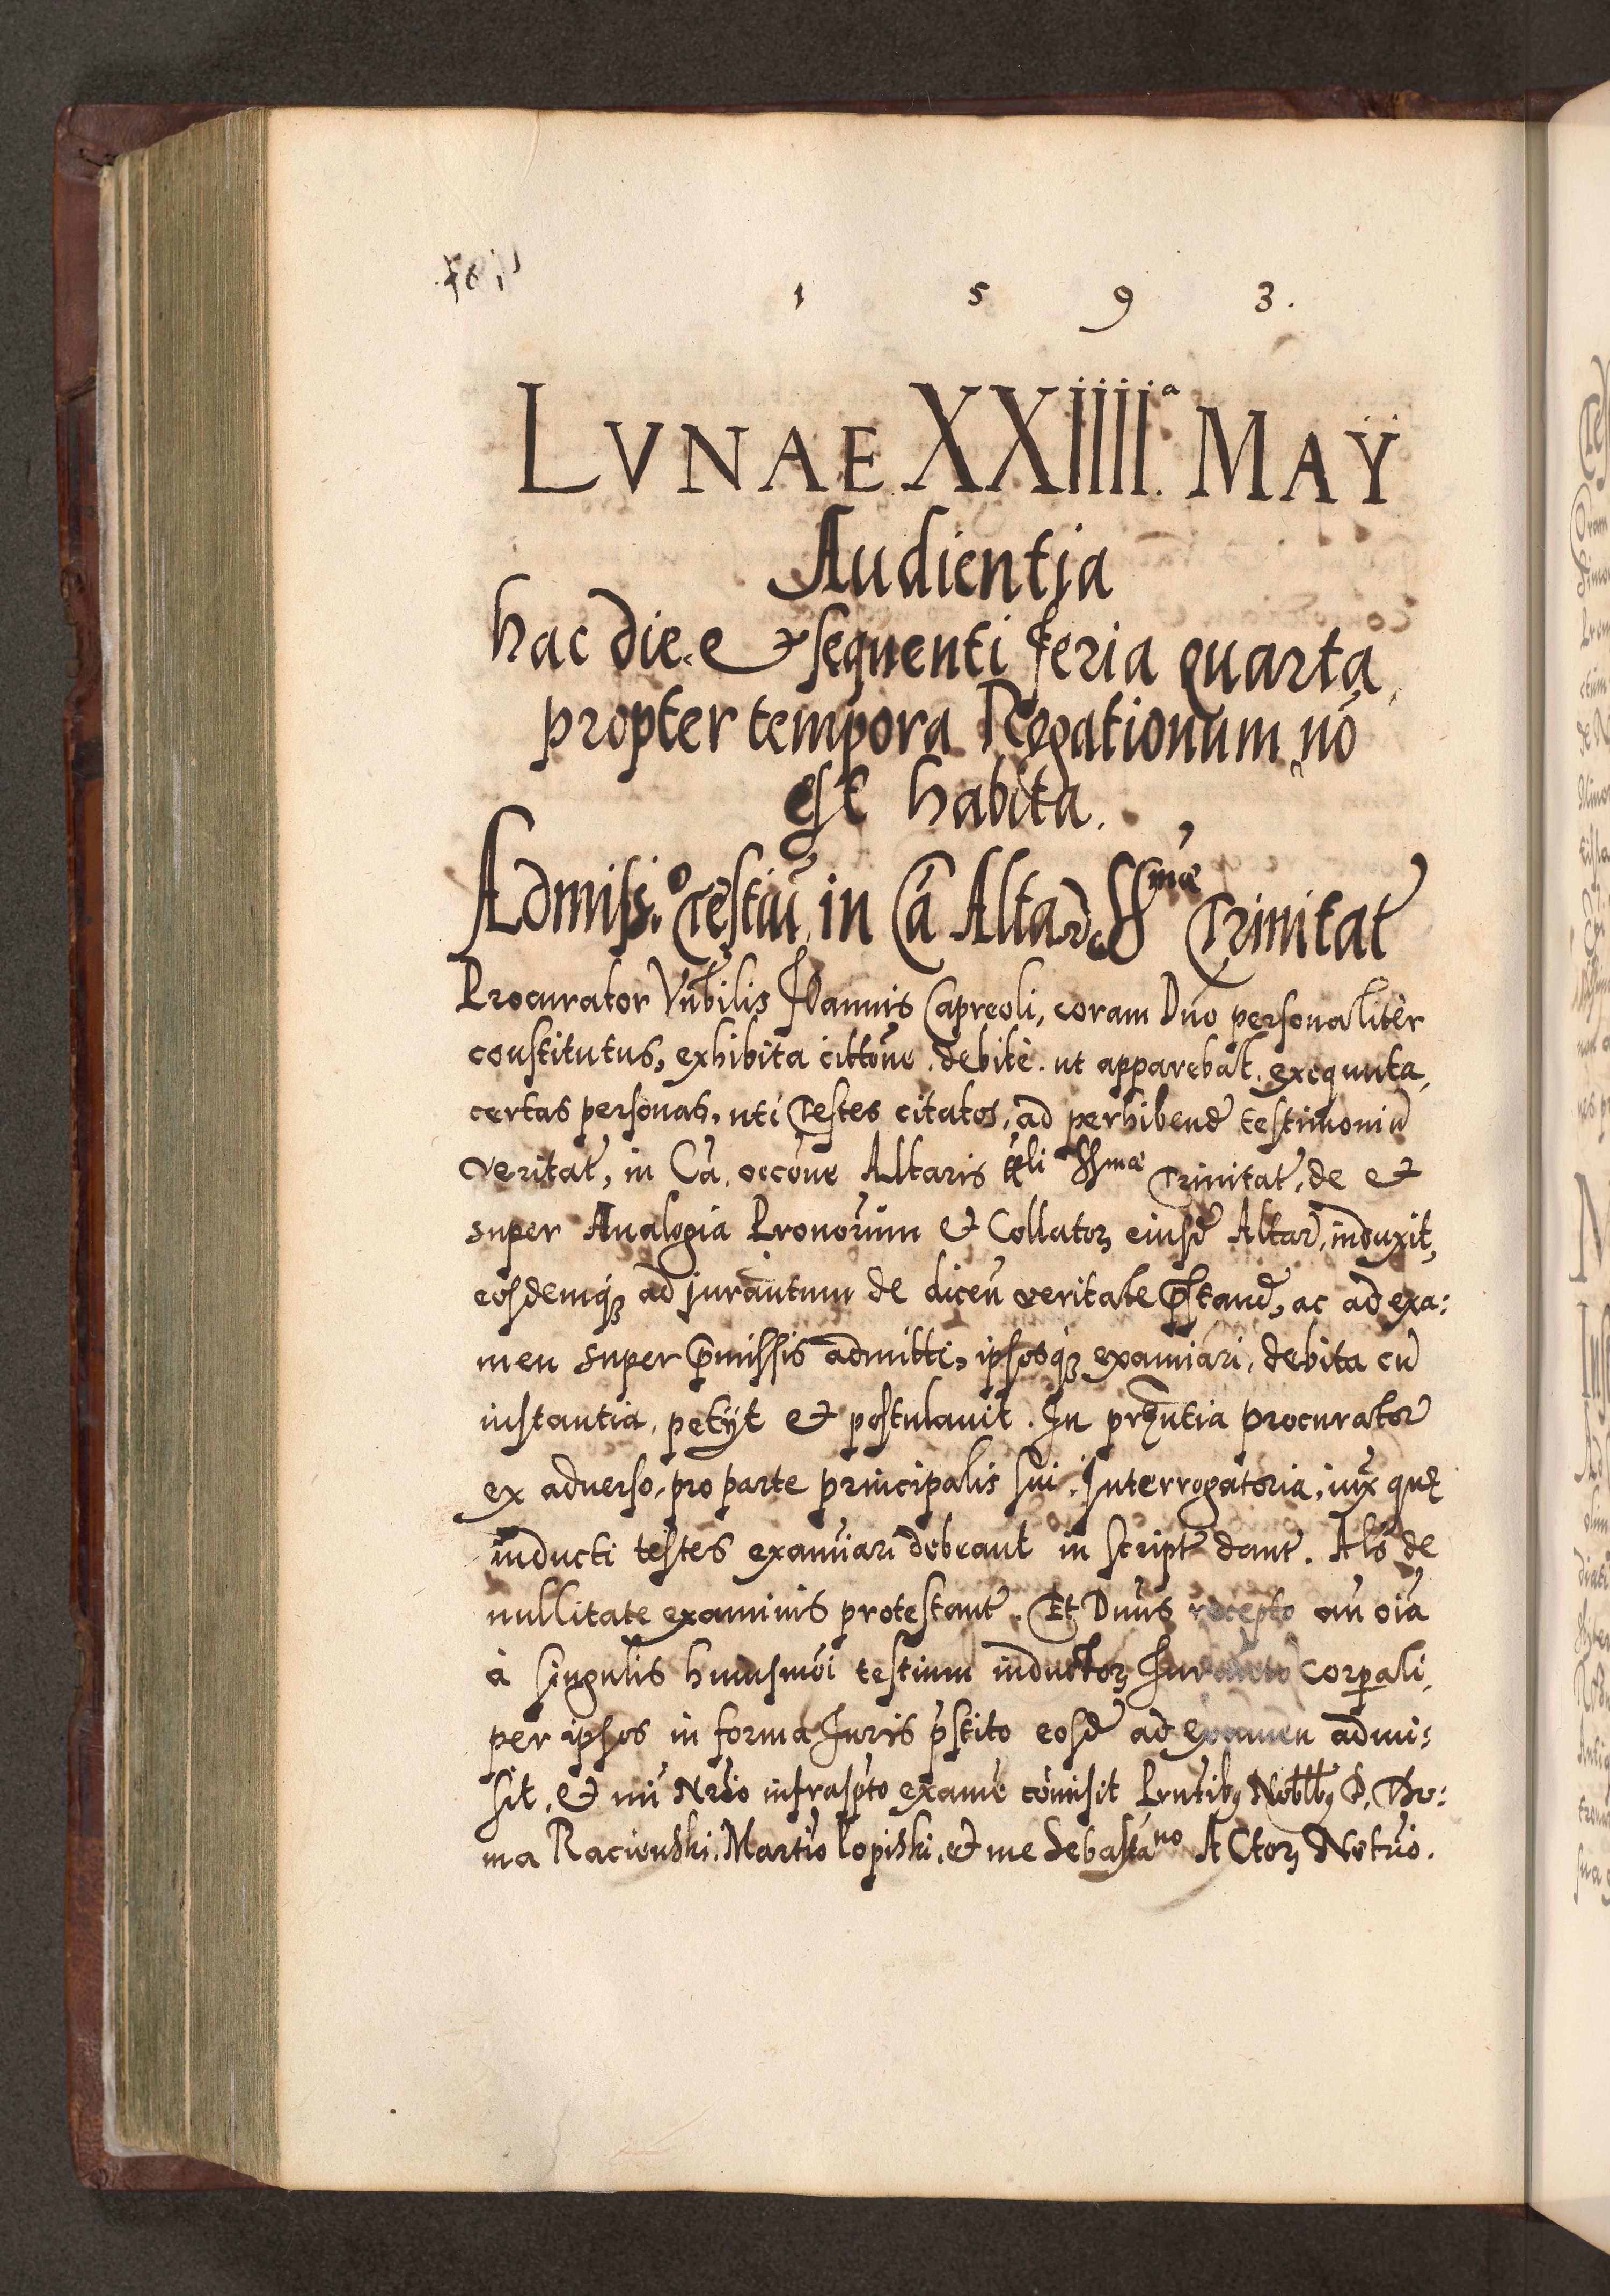 1 5 9 3.
LVNAE XXIIII.ª MAŸ
Audientia
hac die. et sequenti feria quarta,
propter tempora Rogationum, nō
est habita.
Admiss.º Testiū, in Cā Altar SSmæ Trinitat
Procurator Vnbilis Joannis Capreoli, coram Dno personaliter
constitutus, exhibita cittōne, debite. ut apparebat. exequuta,
certas personas, uti Testes citatos, ad perhibend testimoniū
veritat, in Cā, occōne Altaris tli SSmæ Trinitat, de et
super Analogia Pronorum et Collatoꝝ eiusd Altar, induxit,
eosdemqꝫ ad jurāntum de dicēn veritate pstand, ac ad exa:
men super pmissis admitti, ipsosqꝫ examiāri, debita cū
instantia, petÿt et postulauit. In prntia procurator
ex aduerso, pro parte principalis sui, Interrogatoria, iux quę
inducti testes examiari debeant in script dant. Als de
nullitate examinis protestant. Et Dnus recepto an oia
à singulis huiusmōi testium inductoꝝ Juramto corpali,
per ipsos in forma Juris pstito eosd ad examen admi:
sit, et mi Nrio infraspto exame cōmisit Prntibꝫ Nobblbꝫ D, Tho:
ma Racienski, Martīo Lopiski, et me Sebastāno ACtoꝝ Notrio.